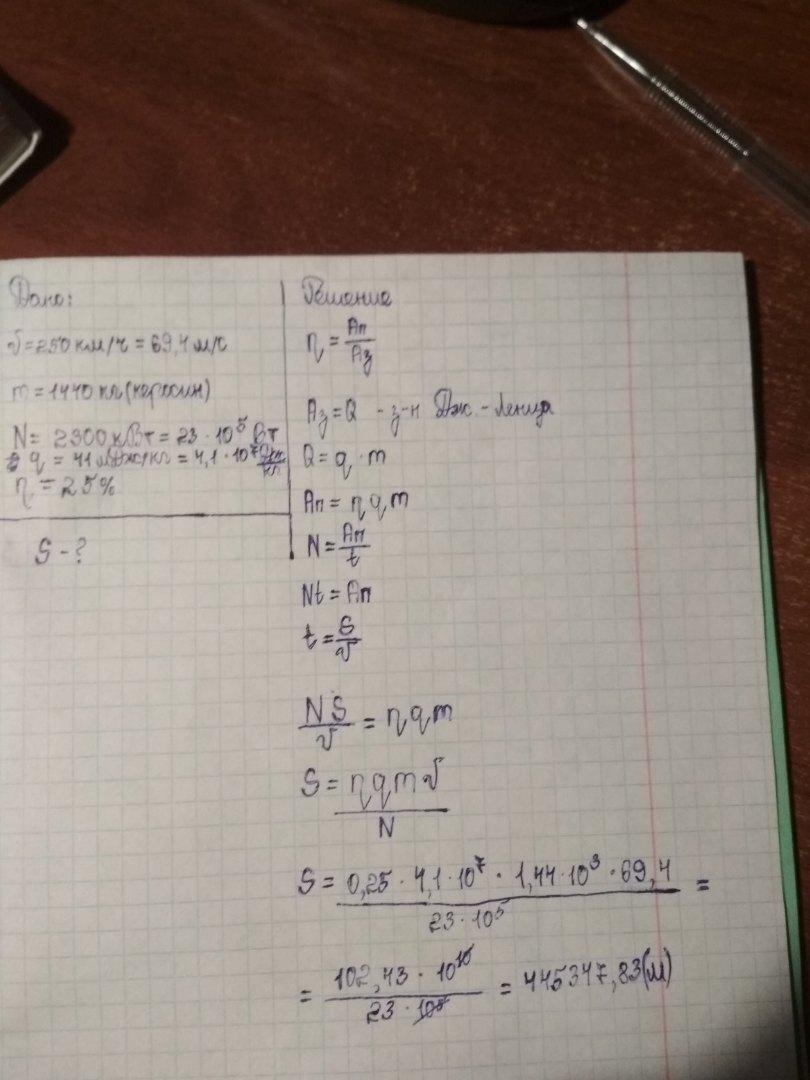 Дано:
v = 250 км/ч = 69,4 м/с
m = 1440 кг (керосин)
N = 2300 кВт = 23 · 10⁵ Вт
q = 41 мДж/кг = 4,1 · 10⁷ Дж/кг
η = 25%
S - ?
Решение
η = Aп/Aз
Aз = Q - з-н Дж. - Ленца
Q = q · m
Aп = η q m
N = Aп/t
Nt = Aп
t = S/v
NS/v = η q m
S = η q m v/N
S = 0,25 · 4,1 · 10⁷ · 1,44 · 10³ · 69,4/23 · 10⁵ =
= 102,43 · 10¹⁰/23 · 10⁵ = 445347,83 (м)